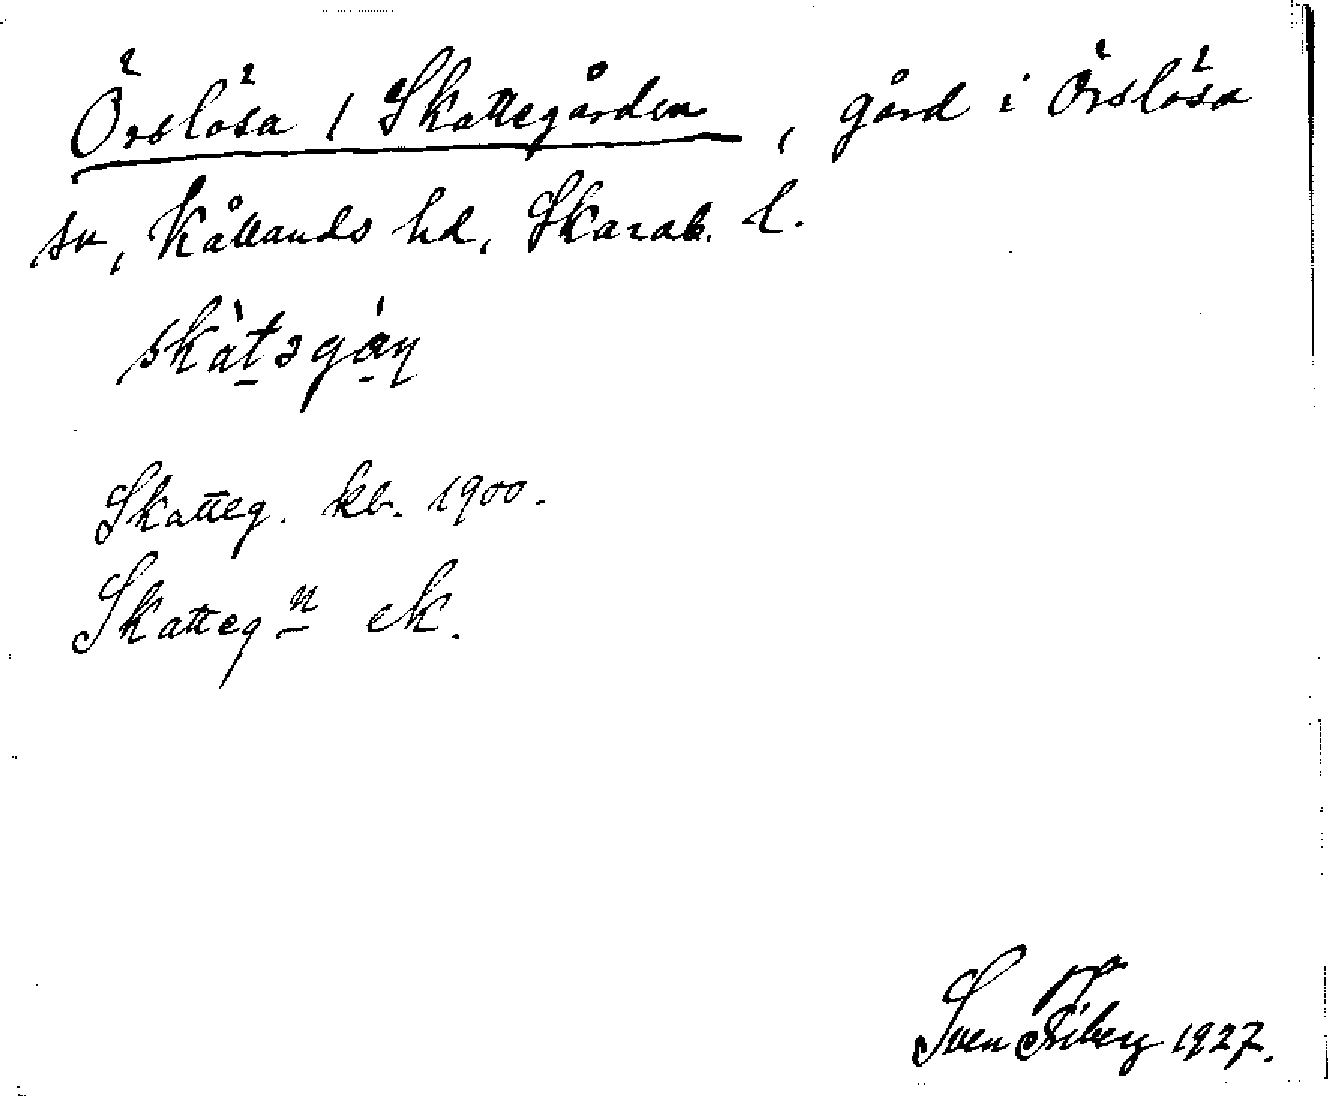 Örslösa, Skattegården, gård i Örslösa
sn, Kållands hd, Skarab. l.
skàt̠əgån
Skatteg. kb. 1900.
Skattegn ek.
Sven Friberg 1927.